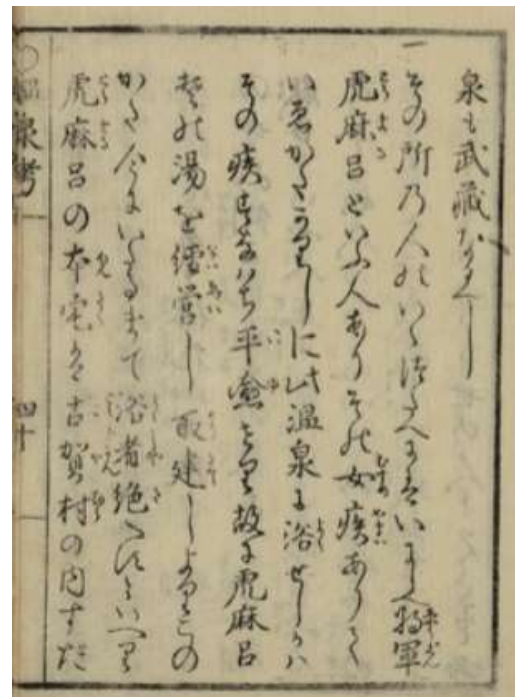 泉も武藏なるへし
一その所乃人のいひ伝へにはいにしへ将軍
虎麻呂といふ人ありその女疾ありて
いゑかたかりしに此温泉に浴せしかハ
その疾すなはち平癒せり故に虎麻呂
その湯を經營し取建しよりこの
かた今にいたるまて浴者絶へすといへり
虎麻呂の本宅は古賀村の内すだ
泉考
四十